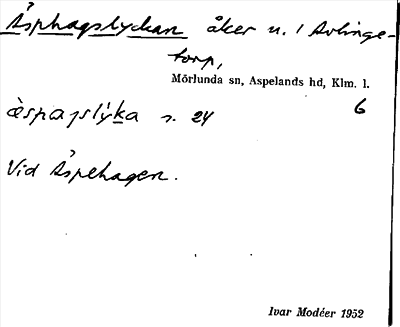 Äsphagslyckan åker n. 1 Arlinge-
torp,
Mörlunda sn, Aspelands hd, Klm. l.
6
æ̀spaɡslýka s. 24
Vid Äspehagen.
Ivar Modéer 1952